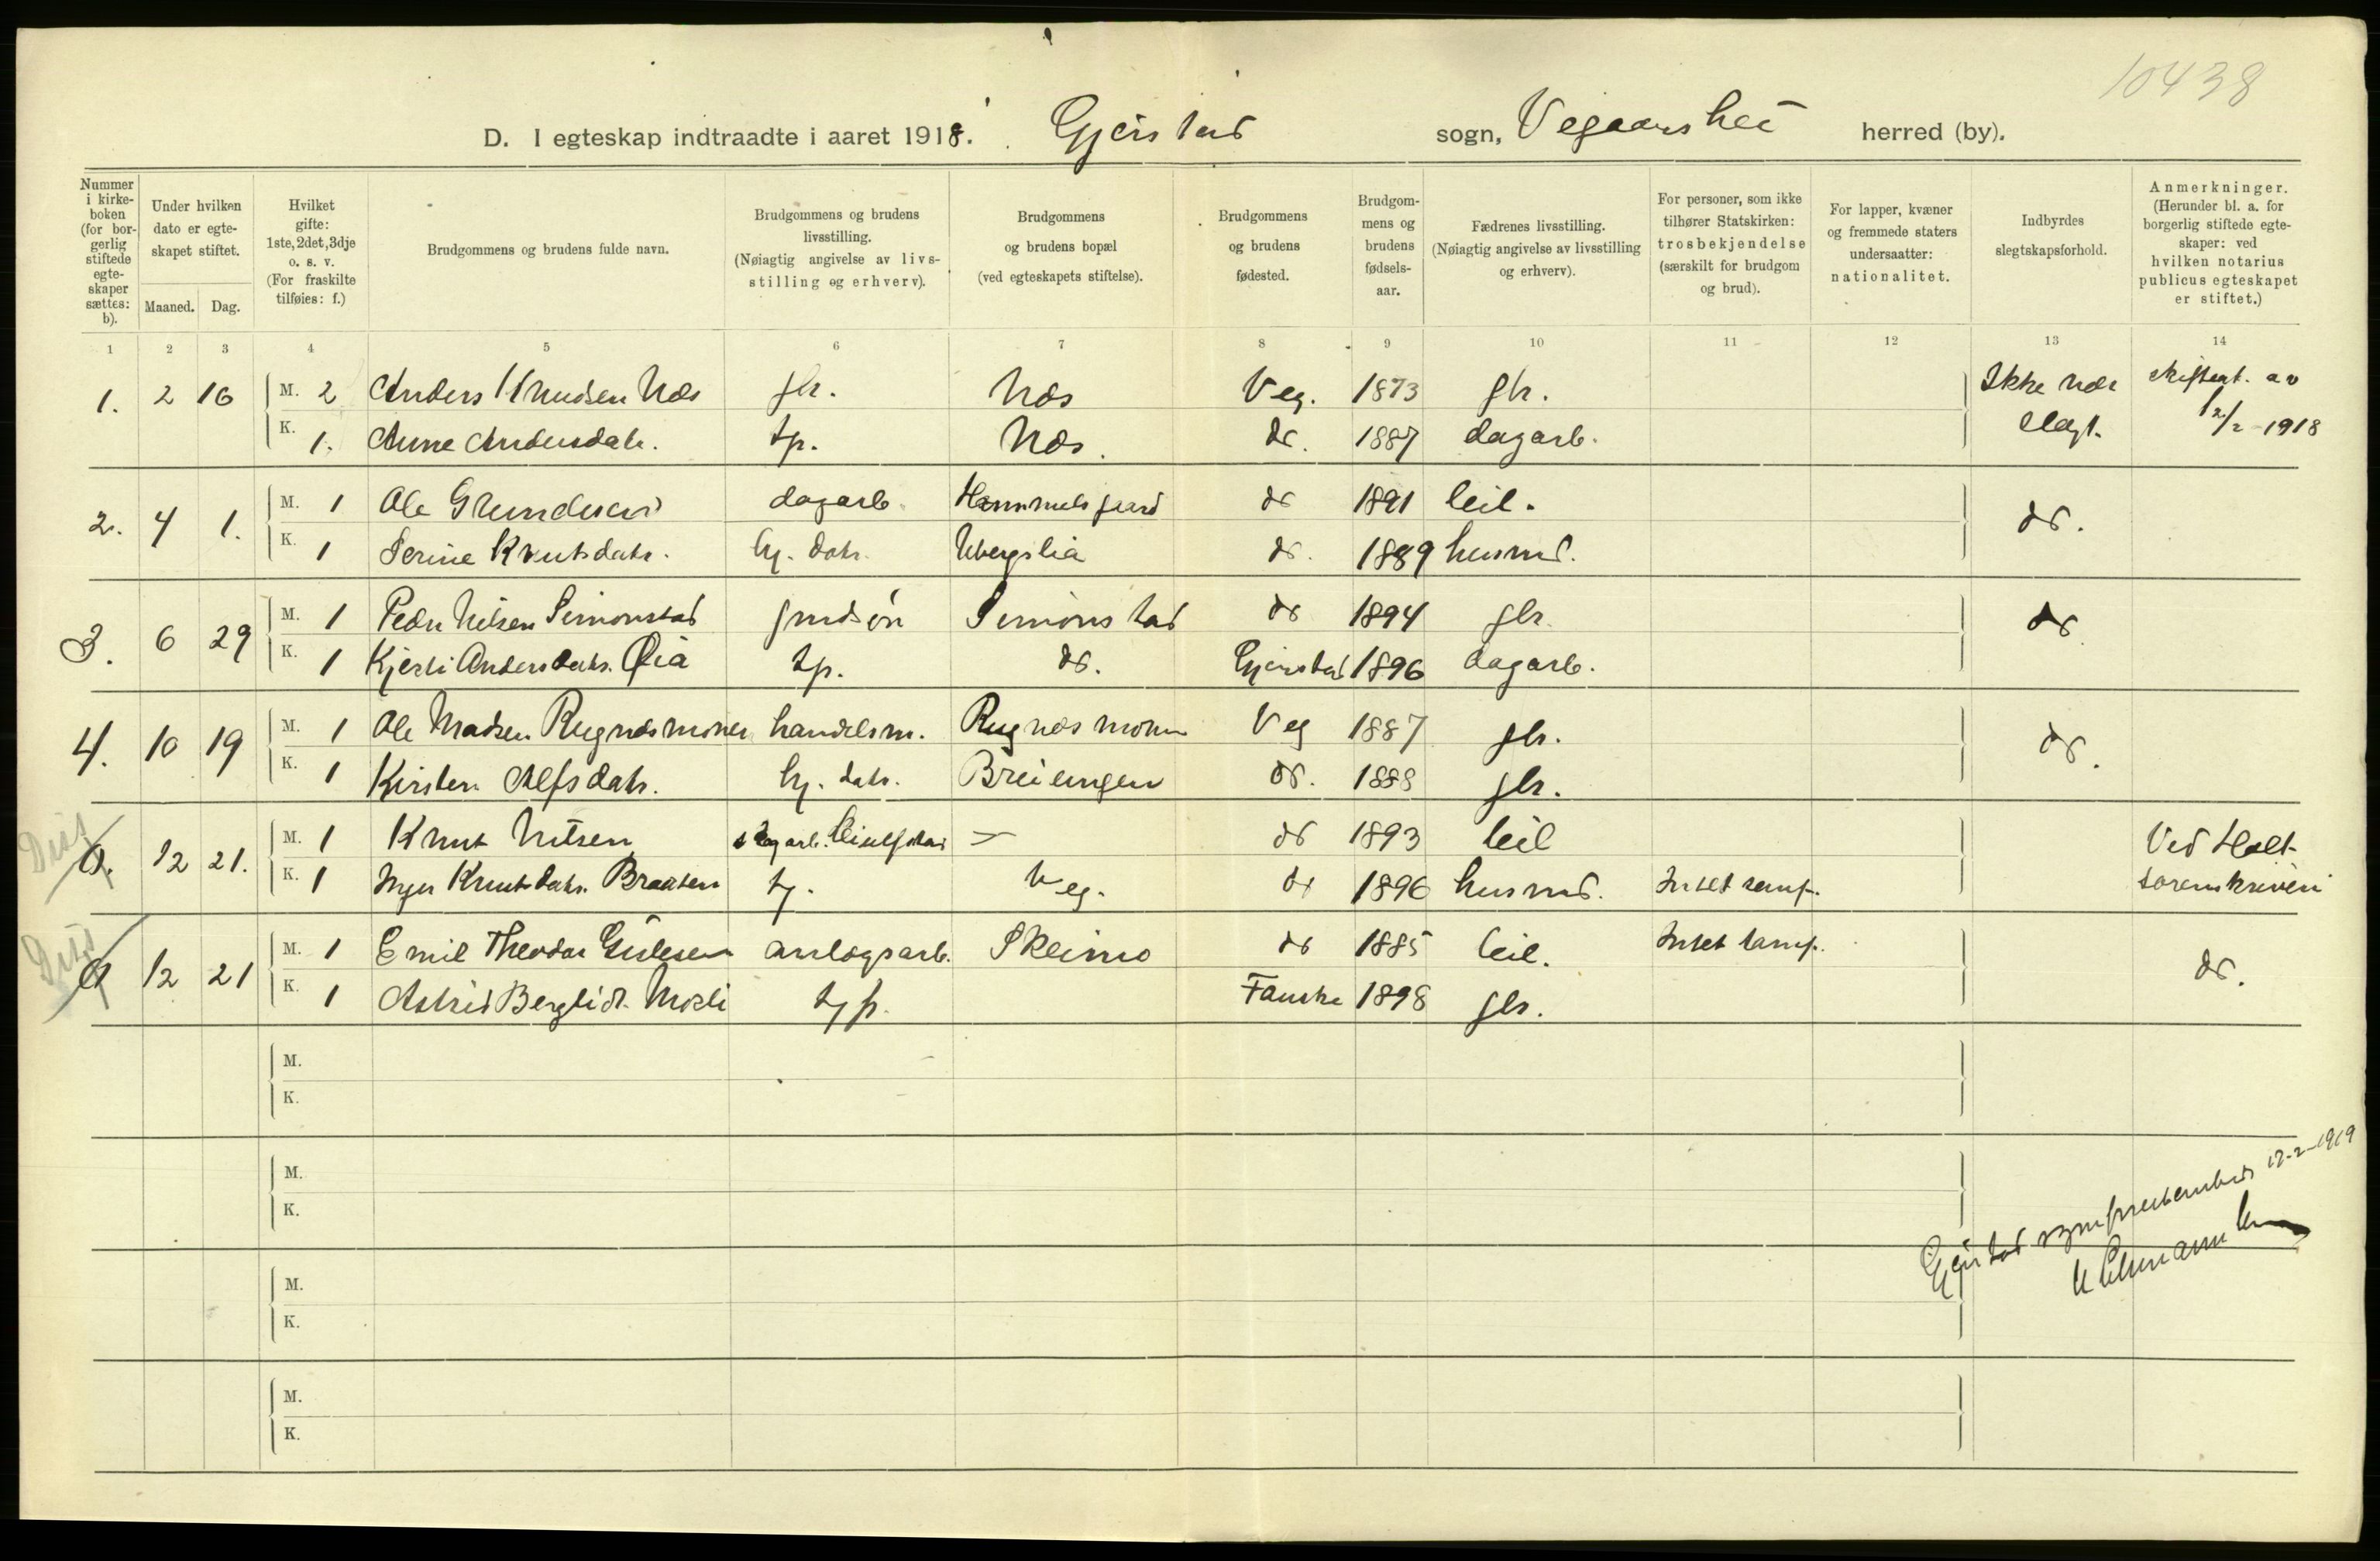 10438
D. I egteskap indtraadte i aaret 1918. Gjerstad sogn, Vegaarshei herred (by).
Nummer i kirke-boken (for bor-gerlig stiftede egte-skaper sættes: b).
Under hvilken dato er egte-skapet stiftet.
Maaned. Dag.
Hvilket gifte: 1ste, 2det, 3dje o. s. v. (For fraskilte tilføies: f.)
Brudgommens og brudens fulde navn.
Brudgommens og brudens livsstilling. (Nøiagtig angivelse av livs-stilling og erhverv).
Brudgommens og brudens bopæl (ved egteskapets stiftelse).
Brudgommens og brudens fødested.
Brudgom-mens og brudens fødsels-aar.
Fædrenes livsstilling. (Nøiagtig angivelse av livsstilling og erhverv).
For personer, som ikke tilhører Statskirken: trosbekjendelse (særskilt for brudgom og brud).
For lapper, kvæner og fremmede staters undersaatter: nationalitet.
Indbyrdes slegtskapsforhold.
Anmerkninger. (Herunder bl. a. for borgerlig stiftede egte-skaper: ved hvilken notarius publicus egteskapet er stiftet.)
1 2 3 4 5 6 7 8 9 10 11 12 13 14
1. 2 16 M. 2 Anders Knudsen Næs gbr. Næs Veg. 1873 gbr. Ikke nær skifteat. av
K. 1. Anne Andersdatr. tp. Næs. do. 1887 dagarb. slegt. 12/2 1918
2. 4 1. M. 1 Ole Gundersen dagarb. Hammelsgaard do 1891 leil. do.
K. 1 Serine Knutsdatr. hj. datr. Ubergslia do. 1889 husmd.
3. 6 29 M. 1 Peder Nilsen Simonstad grndsøn Simonstad do 1894 gbr. do
K. 1 Kjersti Andersdatr. Øia tp. do. Gjerstad 1896 dagarb.
4. 10 19 M. 1 Ole Madsen Rugnæsmoner handelsm. Rugnæsmonen Veg 1887 gbr. do.
K. 1 Kirsten Alfsdatr. hj. datr. Breiungen do. 1888 gbr.
12 21. M. 1 Knut Nilsen do 1893 leil Ved Holt
K. 1 Inger Knutsdatr. Braaten tj. Veg. do 1896 husmd. Intet samf. sorenskriveri
12 21 M. 1 Emil Theodor Gulesen anlægsarb. Skeimo do 1885 leil. Intet samf. do.
K. 1 Astrid Bergliot Moseli tjp. Fauske 1898 gbr.
M.
K.
M.
K.
M.
K.
M.
K.
Gjerstad sogneprestembede 17-2-1919